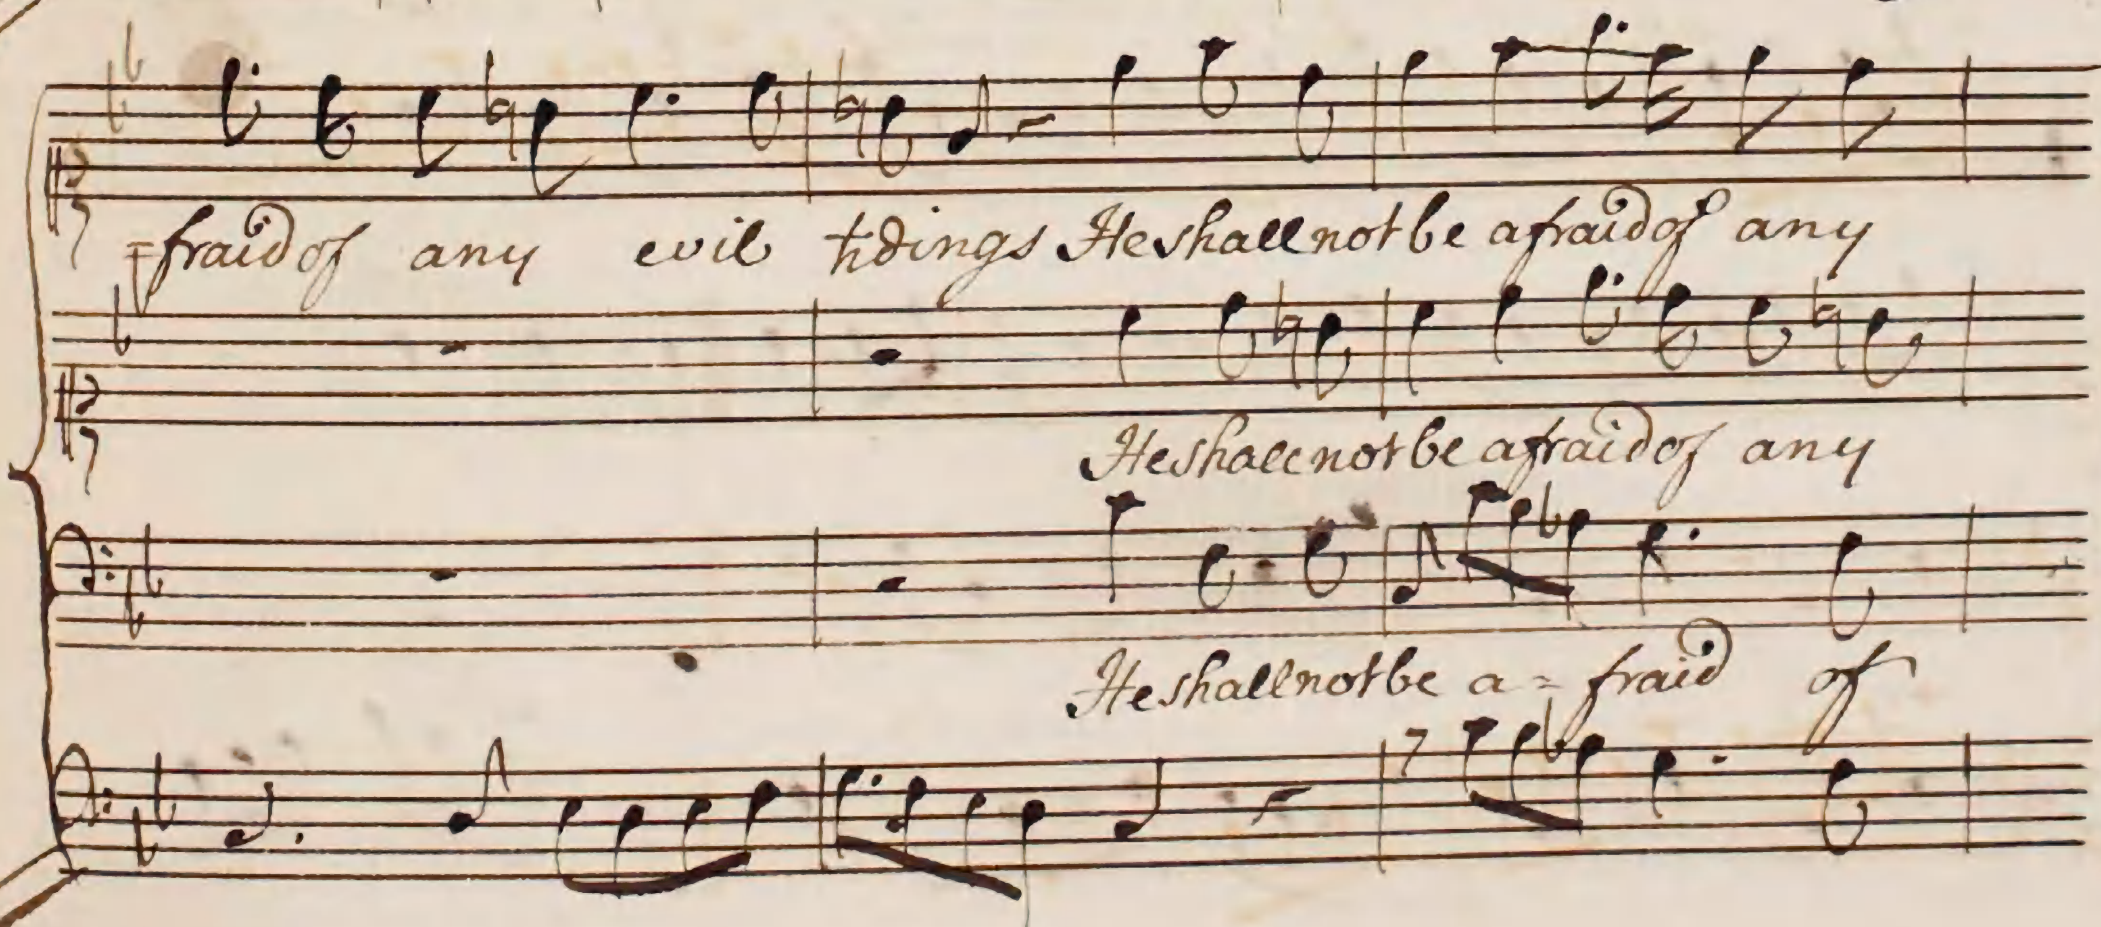 =fraid of any evil tidings He shall not be afraid of any
He shall not be afraid of any
He shall not be a= fraid of